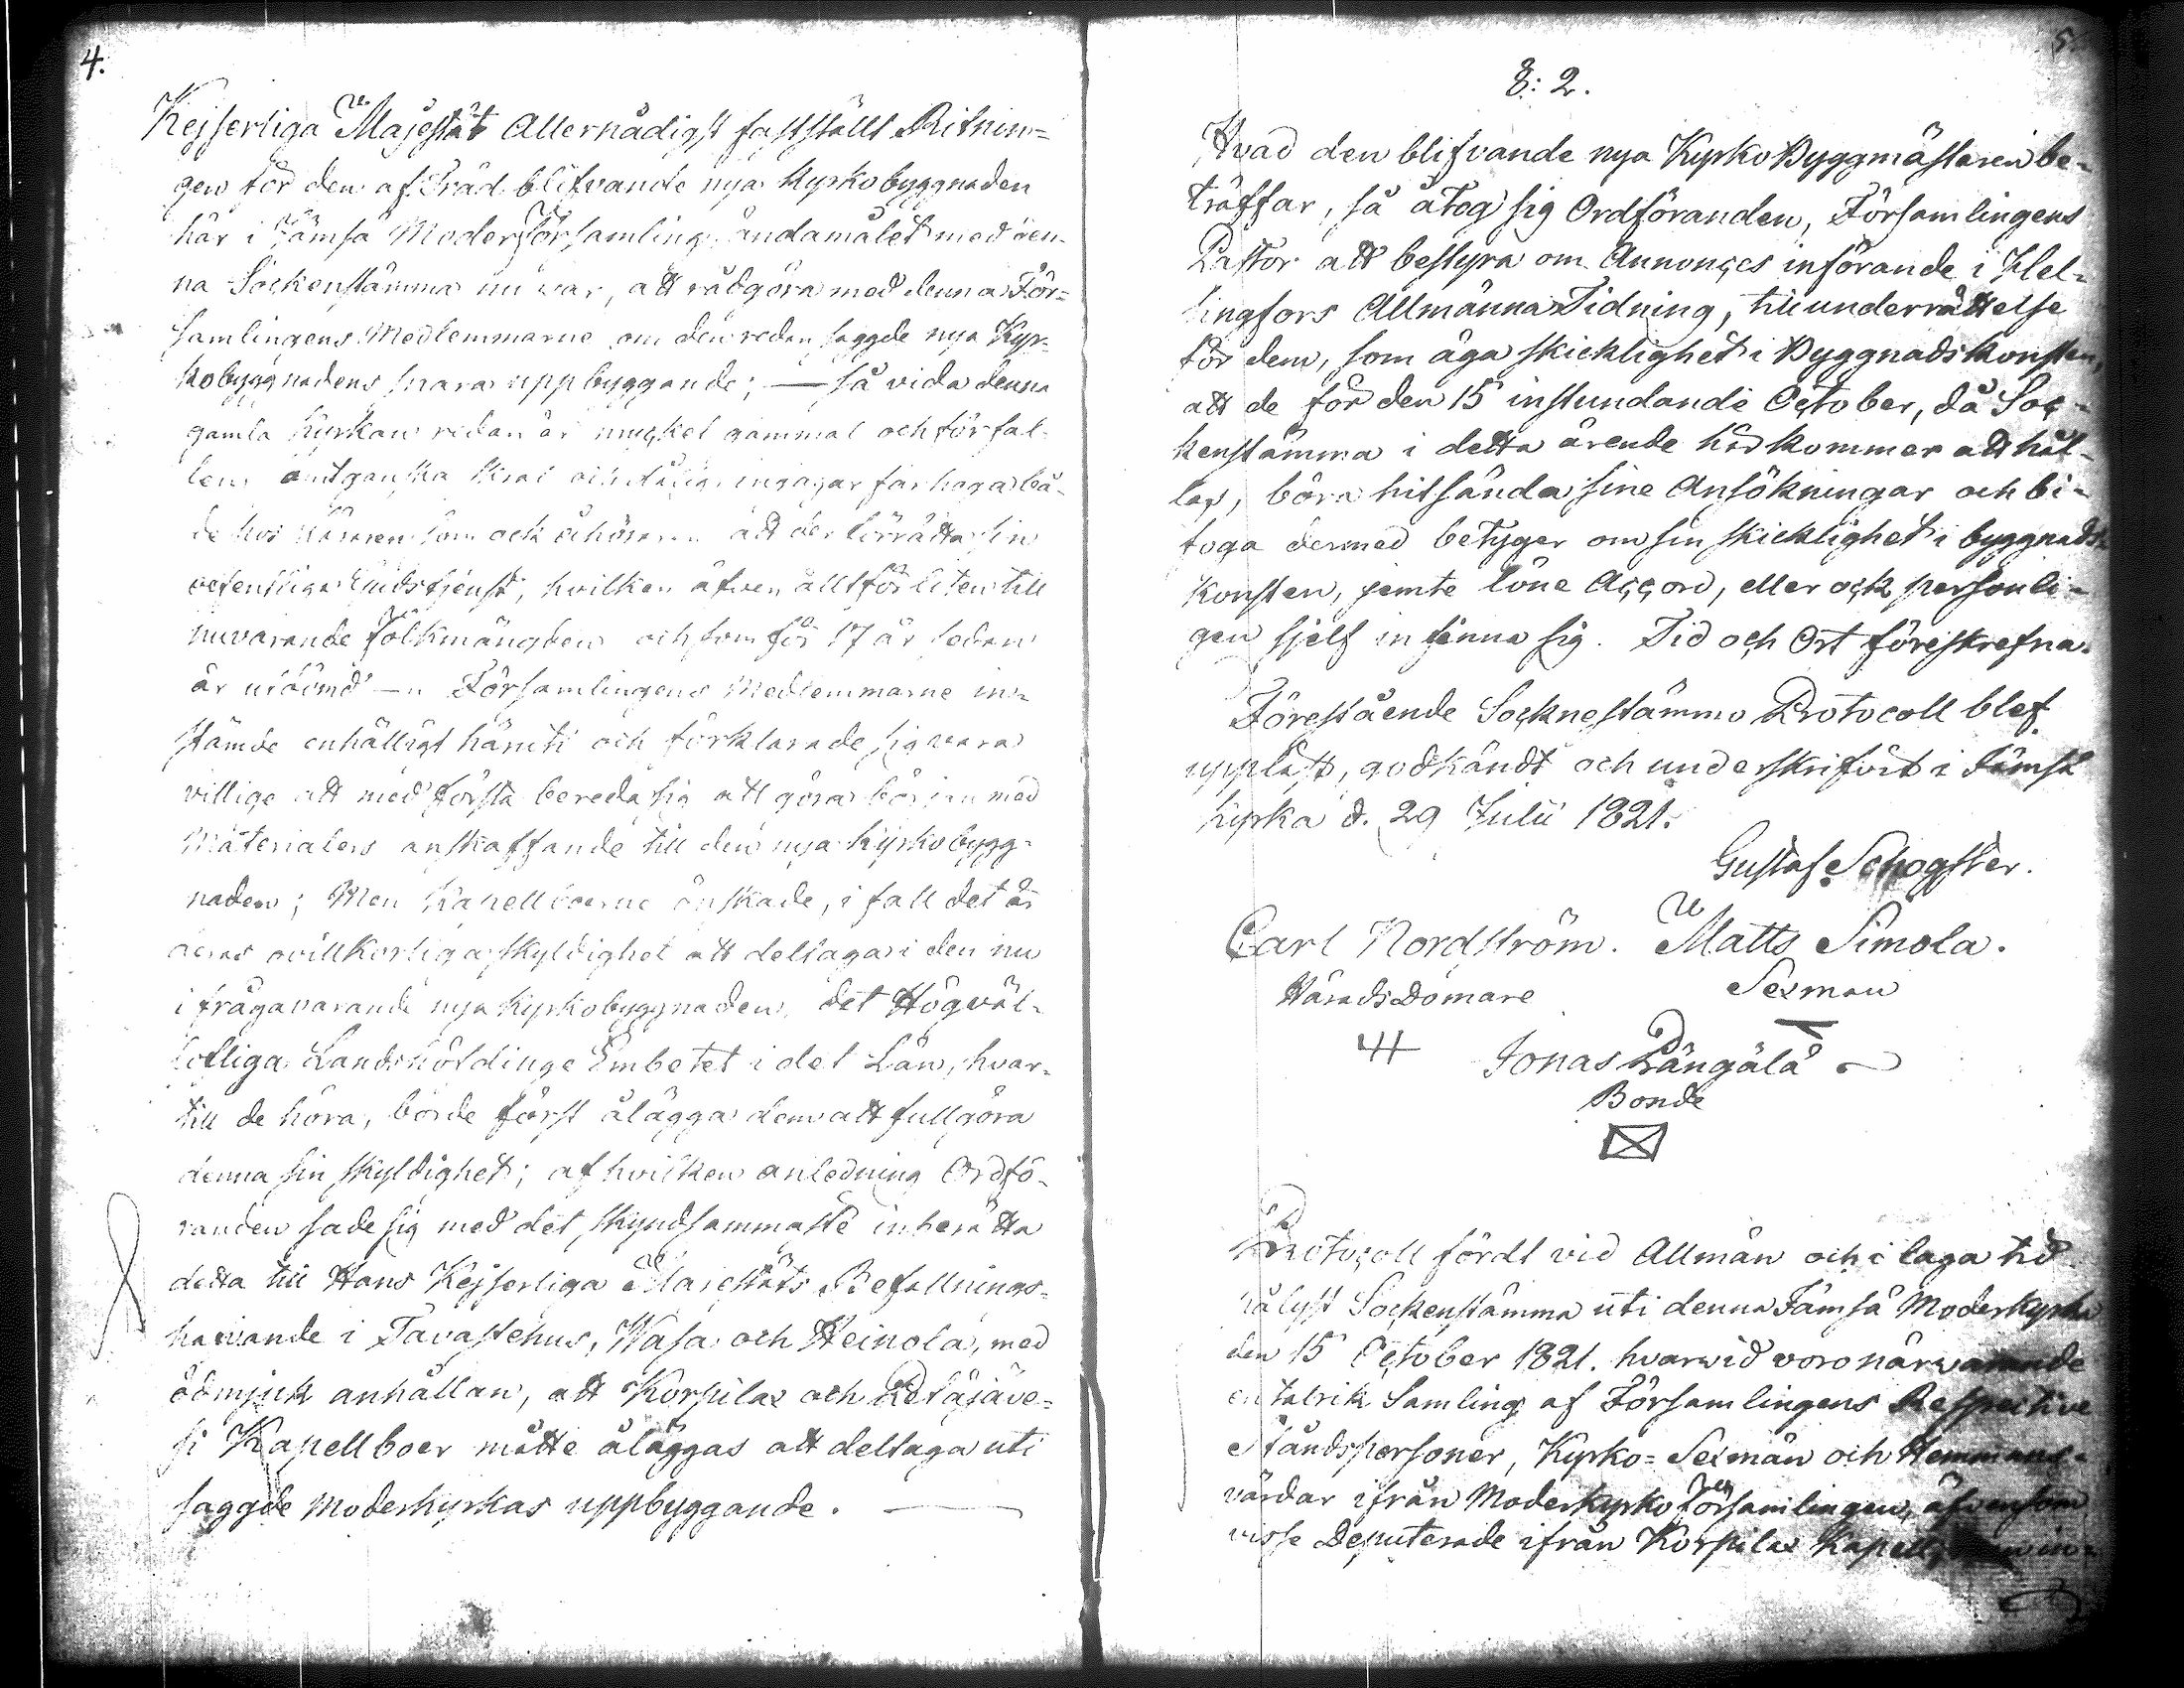 4.
Kejserliga Majestät Allernådigst fastställt Ritnin=
gen för den af Träd blifvande nya Kyrkobyggnaden
här i Jämsä Moderförsamling, ändamålet med den-
na Sockenstämma nu var, att rådgöra med denna För=
samlingens Medlemmarne om den redan saggde nya Kyr-
kobyggnadens snara uppbyggande; — så vida denna
gamla Kyrkan redan är mycket gammal och förfal-
len, ingagar farhoga bå-
de hos som ock åhöraren att der förrätta sin
offentliga Gudstjenst, hvilken äfven alltför liten till
nuvarande folkmängden och som för 17 år sedan
är utdömd — Församlingens Medlemmarne in=
stämde enhälligt häruti och förklarade sig vara
villige att med första bereda sig att göra början med
Materialers anskaffande till den nya Kyrkobygg-
naden; Men Kapellboerne önskade, i fall det är
deras ovillkorliga skyldighet att deltaga i den nu
i fråga varande nya Kyrkobyggnaden, det Högväl-
lofliga Landshöfdinge Embetet i det Län, hvar-
till de höra, borde först ålägga dem att fullgöra
denna sin skyldighet; af hvilken anledning Ordfö-
randen sade sig med det skyndsammaste inberätta
detta till Hans Kejserliga Majestäts Befallnings-
hafvande i Tavastehus, Wasa och Heinola, med
ödmjuk anhållan, att Korpilax och Petäjäve-
si Kapellboer måtte åläggas att deltaga uti
saggde Moderkyrkas uppbyggande. —
5.
§: 2.
Hvad den blifvande nya Kyrko Byggmästaren be-
träffar, så åtog sig Ordföranden, Församlingens
Pastor att bestyra om Annonçes införande i Hel-
singfors Allmänna Tidning, till underrättelse
för dem, som äga skicklighet i Byggnadskonsten,
att de för den 15 instundande October, då Soc-
kenstämma i detta ärende här kommer att hål-
las, böra hitsända sine Ansökningar och bi-
foga dermed betyger om sin skicklighet i byggnads-
konsten, jemte löne Accord, eller ock personli-
gen sjelf infinna sig. Tid och Ort föreskrefna.
Förestående Socknestämmo Protocoll blef
uppläst, godkändt och underskrifvit i Jämsä
Kyrka d. 29 Julii 1821.
Gustaf Schogster.
Carl Nordström. Matts Simola.
HäradsDomare Sexman
Jonas Pängälä
Bonde
Protocoll fördt vid Allmän och i laga tid
pålyst Sockenstämma uti denna Jämsä Moderkyrka
den 15 October 1821. hvarvid voro närvarande
en talrik Samling af Församlingens Respective
Ståndspersoner, Kyrko=Sexmän och Hemmans-
värdar ifrån Moderkyrko Församlingen, äfvensom
visse Deputerade ifrån Korpilax Kapell,